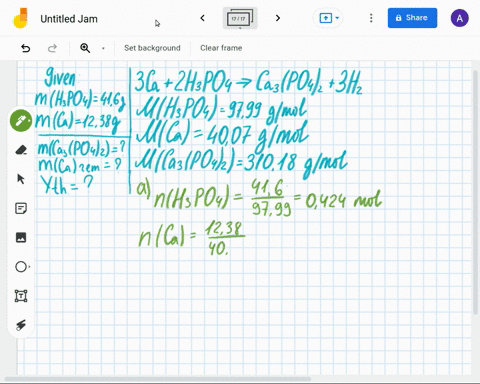 Untitled Jam
17 / 17
Share
A
Set background
Clear frame
Given
m(H3PO4)=41,6g
m(Ca)=12,38g
m(Ca3(PO4)2)=?
m(Ca)rem=?
Yth=?
3Ca+2H3PO4→Ca3(PO4)2+3H2
M(H3PO4)=97,99 g/mol
M(Ca)=40,07 g/mol
M(Ca3(PO4)2)=310,18 g/mol
a) n(H3PO4)=41,6/97,99=0,424 mol
n(Ca)=12,38/40,